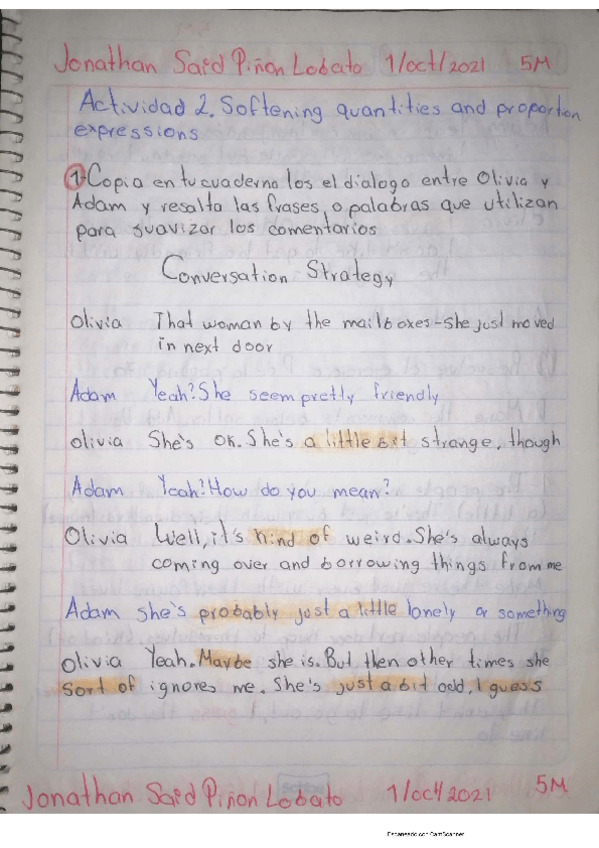 Jonathan Said Piñon Lobato 1/oct/2021 5M
Actividad 2. Softening quantities and proportion
expressions
1-Copia en tu cuaderno los el dialogo entre Olivia y
Adam y resalta las frases o palabras que utilizan
para suavizar los comentarios
Conversation Strategy
Olivia That woman by the mailboxes-she just moved
in next door
Adam Yeah? She seem pretty friendly
olivia She's OK. She's a little bit strange, though
Adam Yeah? How do you mean?
Olivia Well, it's kind of weird. She's always
coming over and borrowing things from me
Adam she's probably just a little lonely or something
Olivia Yeah. Maybe she is. But then other times she
sort of ignores me. She's just a bit odd, I guess
Jonathan Said Piñon Lobato 1/oct/2021 5M
Escaneado con CamScanner